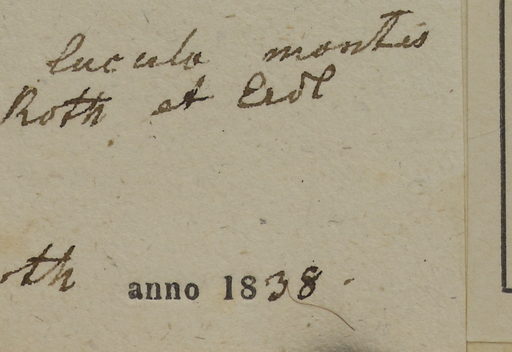 lucula montis
Roth et Erdl
oth anno 1838.